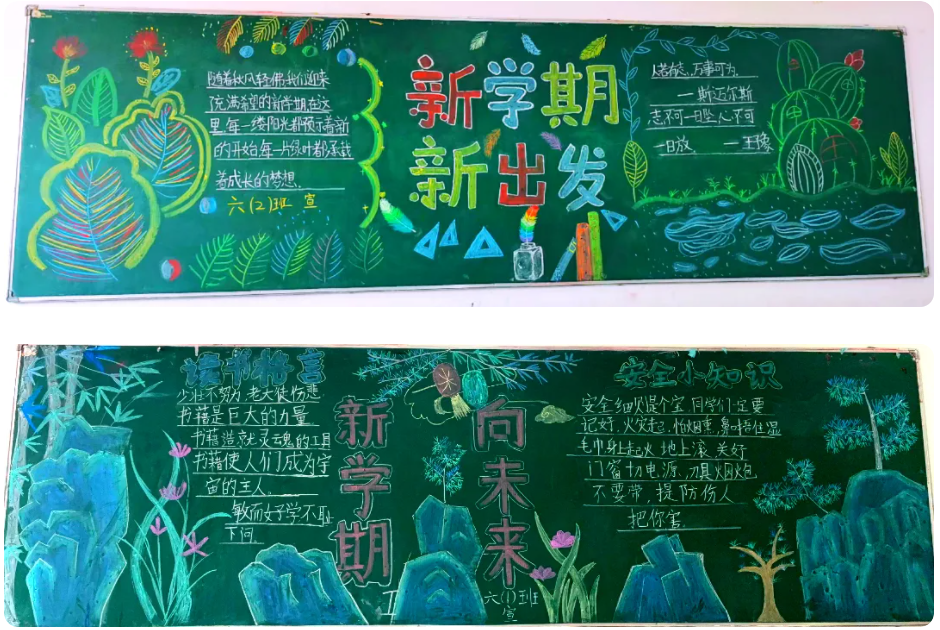 随着秋风轻拂,我们迎来
充满希望的新学期在这
里每一缕阳光都预示着新
的开始,每一片绿叶都承载
着成长的梦想。
六(2)班 宣
新学期
新出发
人若有志,万事可为。
一斯迈尔斯
志不可一日坠,心不可
一日放 一王豫
读书格言
少壮不努力 老大徒伤悲
书籍是巨大的力量
书籍是 灵魂的工具
书籍使人们成为宇
宙的主人。
敏而好学不耻
下问。
新学期
向未来
六(1)班
宣
安全小知识
安全知识是个宝 同学们一定要
记好. 火灾起、怕烟熏 鼻捂住湿
毛巾身上起火 地上滚 关好
门窗切电源,刀具烟火炮
不要带,提防伤人
把你害。